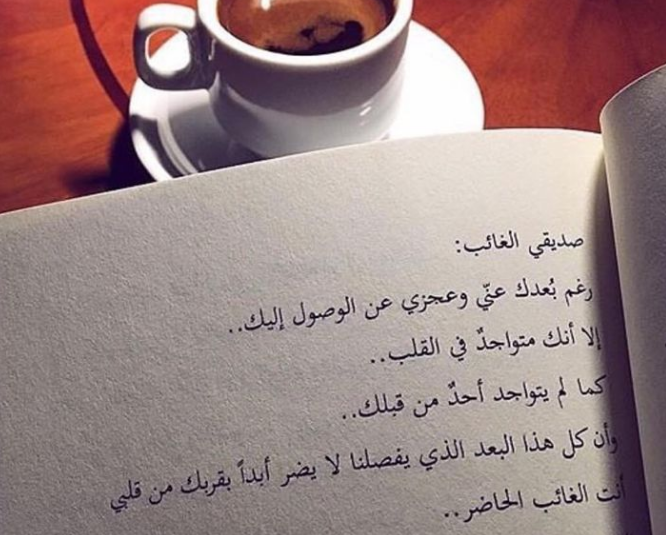 صديقي الغائب:
رغم بُعدك عنّي وعجزي عن الوصول إليك..
إلا أنك متواجدٌ في القلب..
كما لم يتواجد أحدٌ من قبلك..
وأن كل هذا البعد الذي يفصلنا لا يضر أبداً بقربك من قلبي
أنت الغائب الحاضر..